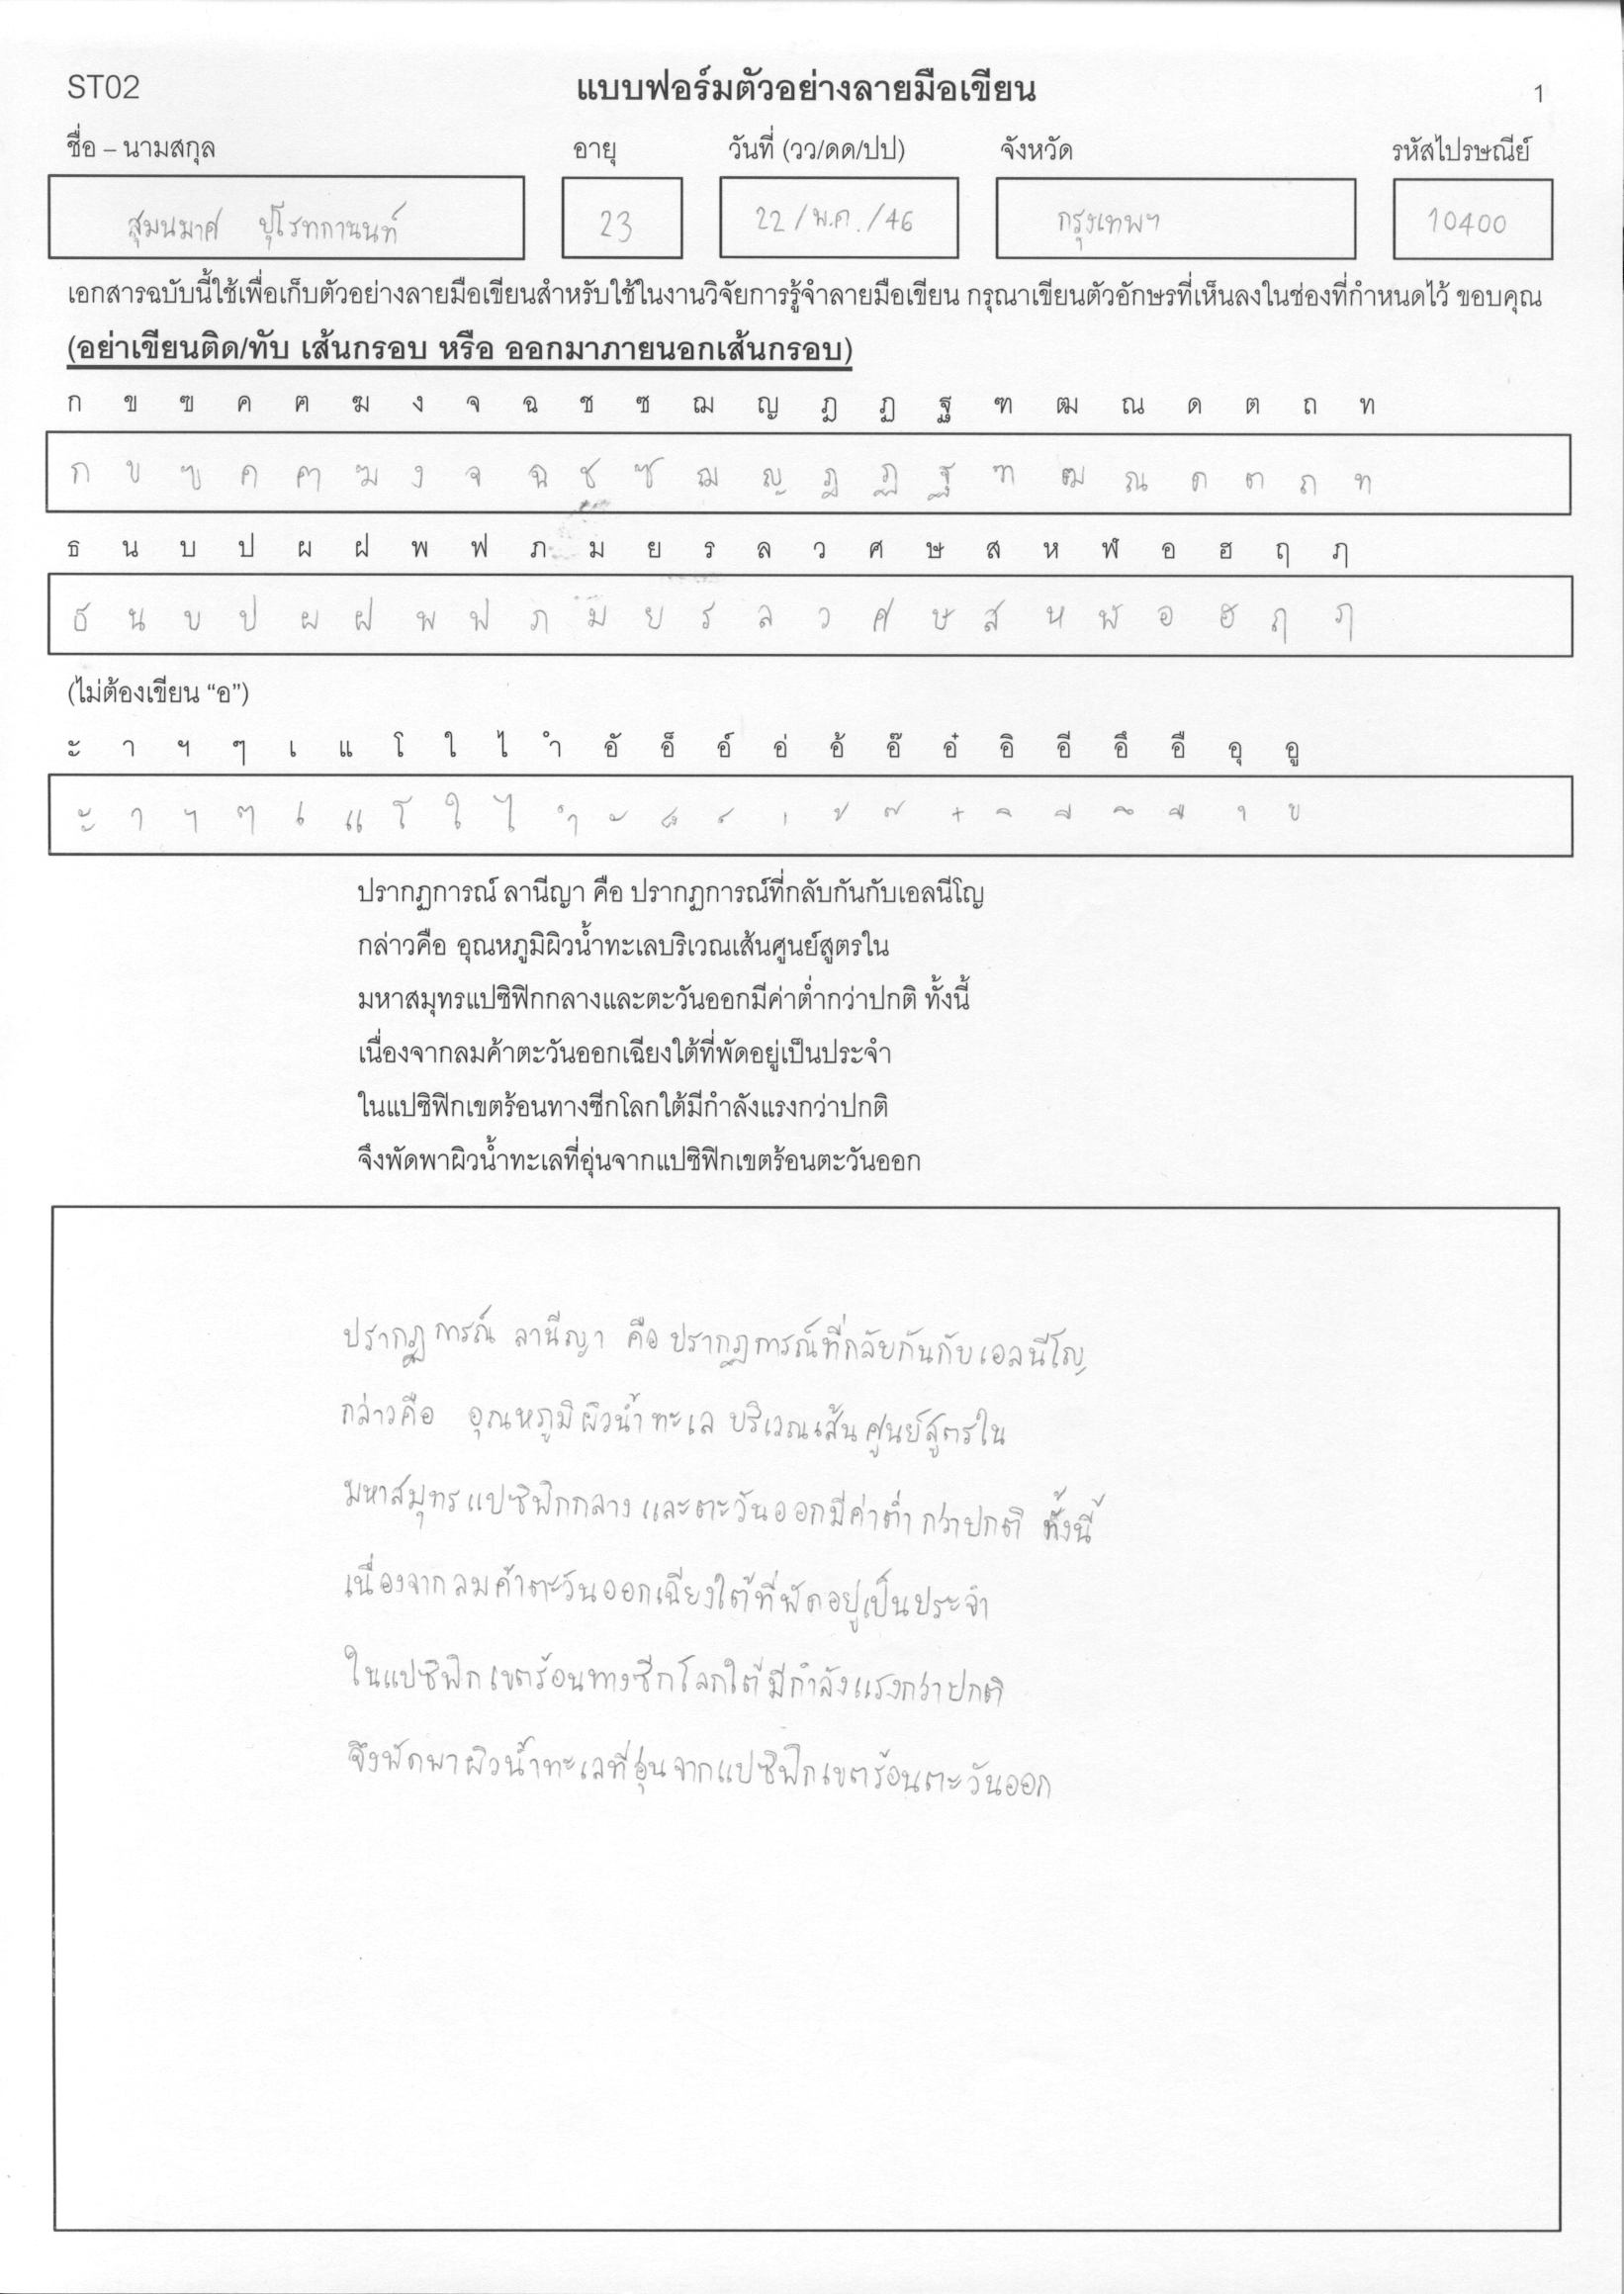 ST02 แบบฟอร์มตัวอย่างลายมือเขียน 1
ชื่อ – นามสกุล อายุ วันที่ (วว/ดด/ปป) จังหวัด รหัสไปรษณีย์
สุมนมาศ ปุโรทกานนท์ 23 22/พ.ค./46 กรุงเทพฯ 10400
เอกสารฉบับนี้ใช้เพื่อเก็บตัวอย่างลายมือเขียนสำหรับใช้ในงานวิจัยการรู้จำลายมือเขียน กรุณาเขียนตัวอักษรที่เห็นลงในช่องที่กำหนดไว้ ขอบคุณ
(อย่าเขียนติด/ทับ เส้นกรอบ หรือ ออกมาภายนอกเส้นกรอบ)
ก ข ฃ ค ฅ ฆ ง จ ฉ ช ซ ฌ ญ ฎ ฏ ฐ ฑ ฒ ณ ด ต ถ ท
ก ข ฃ ค ฅ ฆ ง จ ฉ ช ซ ฌ ญ ฎ ฏ ฐ ฑ ฒ ณ ด ต ถ ท
ธ น บ ป ผ ฝ พ ฟ ภ ม ย ร ล ว ศ ษ ส ห ฬ อ ฮ ฤ ฦ
ธ น บ ป ผ ฝ พ ฟ ภ ม ย ร ล ว ศ ษ ส ห ฬ อ ฮ ฤ ฦ
(ไม่ต้องเขียน “อ”)
ะ า ฯ ๆ เ แ โ ใ ไ ำ อั อ็ อ์ อ่ อ้ อ๊ อ๋ อิ อี อึ อื อุ อู
ะ า ฯ ๆ เ แ โ ใ ไ ำ ั ็ ์ ่ ้ ๊ ๋ ิ ี ึ ื ุ ู
ปรากฏการณ์ ลานีญา คือ ปรากฏการณ์ที่กลับกันกับเอลนีโญ
กล่าวคือ อุณหภูมิผิวน้ำทะเลบริเวณเส้นศูนย์สูตรใน
มหาสมุทรแปซิฟิกกลางและตะวันออกมีค่าต่ำกว่าปกติ ทั้งนี้
เนื่องจากลมค้าตะวันออกเฉียงใต้ที่พัดอยู่เป็นประจำ
ในแปซิฟิกเขตร้อนทางซีกโลกใต้มีกำลังแรงกว่าปกติ
จึงพัดพาผิวน้ำทะเลที่อุ่นจากแปซิฟิกเขตร้อนตะวันออก
ปรากฏการณ์ ลานีญา คือ ปรากฏการณ์ที่กลับกันกับเอลนีโญ
กล่าวคือ อุณหภูมิผิวน้ำทะเล บริเวณเส้นศูนย์สูตรใน
มหาสมุทรแปซิฟิกกลางและตะวันออกมีค่าต่ำกว่าปกติ ทั้งนี้
เนื่องจากลมค้าตะวันออกเฉียงใต้ที่พัดอยู่เป็นประจำ
ในแปซิฟิกเขตร้อนทางซีกโลกใต้มีกำลังแรงกว่าปกติ
จึงพัดพาผิวน้ำทะเลที่อุ่นจากแปซิฟิกเขตร้อนตะวันออก